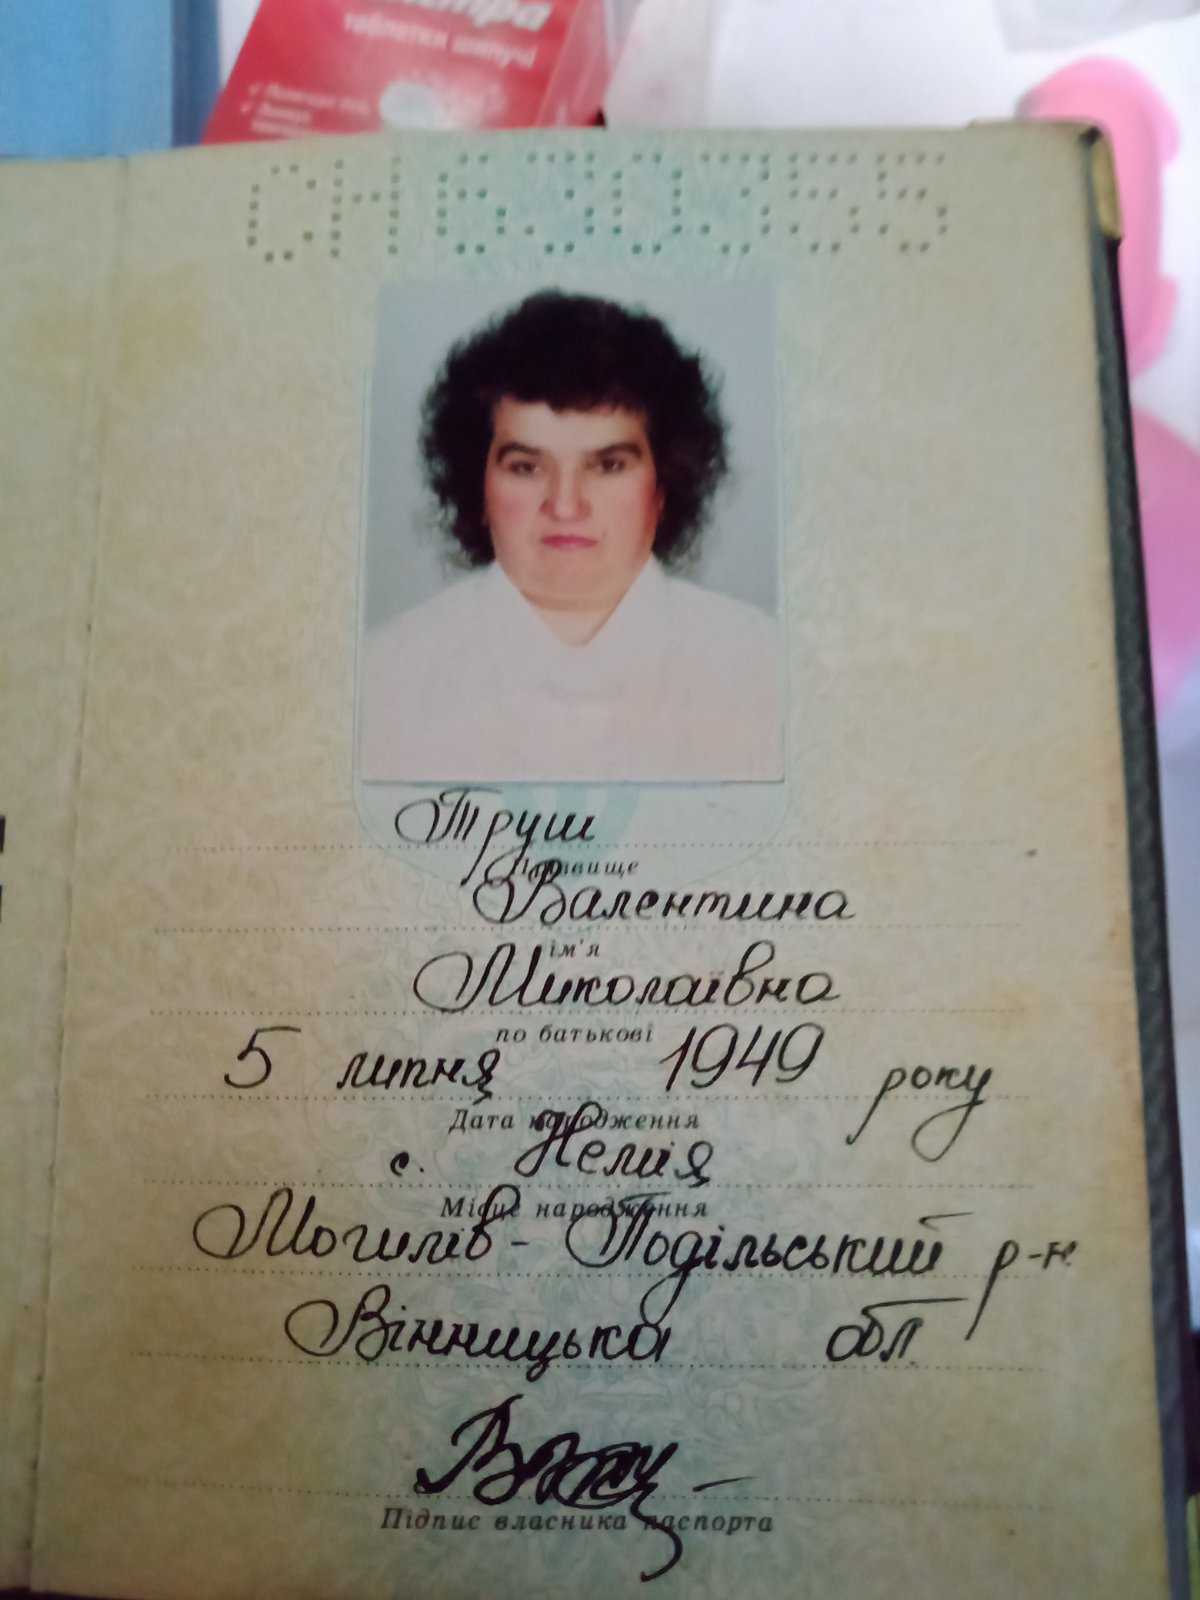 таблетки шипучі
СН630355
Труш
Прізвище
Валентина
ім'я
Миколаївна
по батькові
5 липня 1949 року
Дата народження
с. Немія
Місце народження
Могилів-Подільський р-н
Вінницька обл.
Підпис власника паспорта